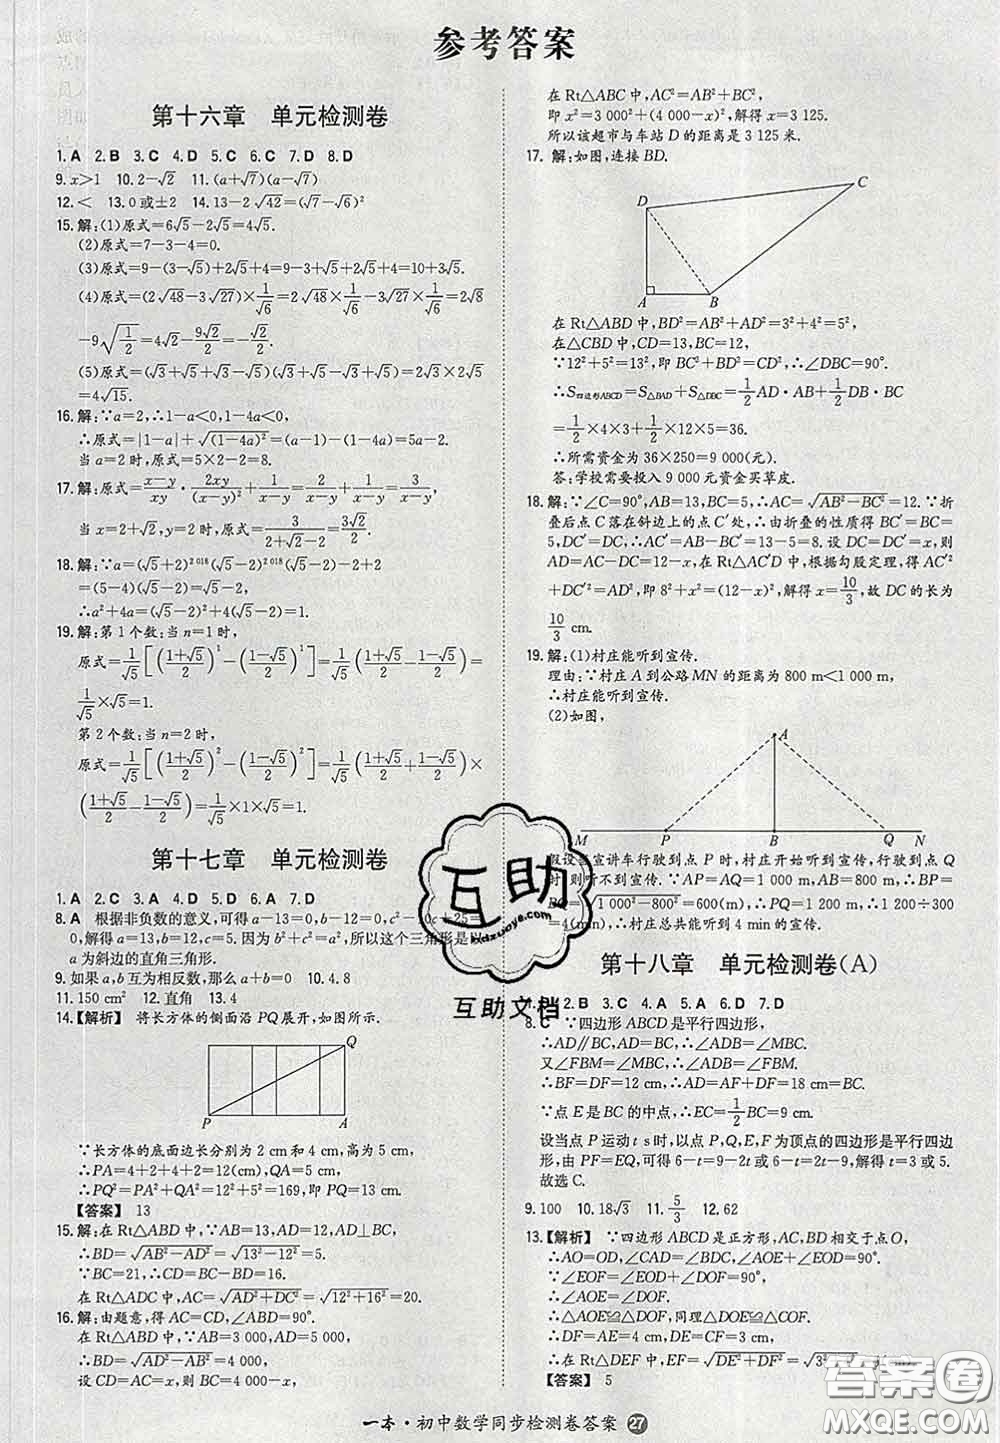 参考答案
第十六章 单元检测卷
1. A 2. B 3. C 4. D 5. C 6. C 7. D 8. D
9. x>1 10. 2-√2 11. (a+√7)(a-√7)
12. < 13. 0或±2 14. 13-2√42=(√7-√6)²
15. 解:(1)原式=6√5-2√5=4√5.
(2)原式=7-3-4=0.
(3)原式=9-(3-√5)+2√5+4=9-3+√5+2√5+4=10+3√5.
(4)原式=(2√48-3√27)×1/√6=2√48×1/√6-3√27×1/√6=2√8
-9√(1/2)=4√2-9√2/2=-√2/2.
(5)原式=(√3+√5+√3-√5)(√3+√5-√3+√5)=2√3×2√5
=4√15.
16. 解:∵a=2,∴1-a<0,1-4a<0,
∴原式=|1-a|+√(1-4a)²=(a-1)+(4a-1)=5a-2.
当a=2时,原式=5×2-2=8.
17. 解:原式=(x-y)/xy·2xy/(x-y)²+1/(x-y)=2/(x-y)+1/(x-y)=3/(x-y),
当x=2+√2,y=2时,原式=3/(2+√2-2)=3√2/2.
18. 解:∵a=(√5+2)²⁰¹⁸(√5-2)²⁰¹⁸(√5-2)-2+2
=(5-4)(√5-2)=√5-2,
∴a²+4a=(√5-2)²+4(√5-2)=1.
19. 解:第1个数:当n=1时,
原式=1/√5[((1+√5)/2)¹-((1-√5)/2)¹]=1/√5((1+√5)/2-(1-√5)/2)=
1/√5×√5=1.
第2个数:当n=2时,
原式=1/√5[((1+√5)/2)²-((1-√5)/2)²]=1/√5((1+√5)/2+(1-√5)/2)×
((1+√5)/2-(1-√5)/2)=1/√5×1×√5=1.
第十七章 单元检测卷
1. A 2. C 3. A 4. D 5. D 6. A 7. D
8. A 根据非负数的意义,可得a-13=0,b-12=0,c²-10c+25=
0,解得a=13,b=12,c=5.因为b²+c²=a²,所以这个三角形是以
a为斜边的直角三角形.
9. 如果a,b互为相反数,那么a+b=0 10. 4.8
11. 150 cm² 12. 直角 13. 4
14.【解析】 将长方体的侧面沿PQ展开,如图所示.
Q
P A
∵长方体的底面边长分别为2 cm和4 cm,高为5 cm,
∴PA=4+2+4+2=12(cm),QA=5 cm,
∴PQ²=PA²+QA²=12²+5²=169,即PQ=13 cm.
【答案】 13
15. 解:在Rt△ABD中,∵AB=13,AD=12,AD⊥BC,
∴BD=√(AB²-AD²)=√(13²-12²)=5.
∵BC=21,∴CD=BC-BD=16.
在Rt△ADC中,AC=√(AD²+DC²)=√(12²+16²)=20.
16. 解:由题意,得AC=CD,∠ABD=90°.
在Rt△ABD中,∵AB=3 000,AD=5 000,
∴BD=√(AD²-AB²)=4 000,
设CD=AC=x,则BC=4 000-x,
在Rt△ABC中,AC²=AB²+BC²,
即x²=3 000²+(4 000-x)²,解得x=3 125.
所以该超市与车站D的距离是3 125米.
17. 解:如图,连接BD.
C
D
A B
在Rt△ABD中,BD²=AB²+AD²=3²+4²=5²,
在△CBD中,CD=13,BC=12,
∵12²+5²=13²,即BC²+BD²=CD²,∴∠DBC=90°.
∴S四边形ABCD=S△BAD+S△DBC=1/2AD·AB+1/2DB·BC
=1/2×4×3+1/2×12×5=36.
∴所需资金为36×250=9 000(元).
答:学校需要投入9 000元资金买草皮.
18. 解:∵∠C=90°,AB=13,BC=5,∴AC=√(AB²-BC²)=12.∵折
叠后点C落在斜边上的点C′处,∴由折叠的性质得BC′=BC=
5,DC′=DC,∴AC′=AB-BC′=13-5=8.设DC=DC′=x,则
AD=AC-DC=12-x,在Rt△AC′D中,根据勾股定理,得AC′²
+DC′²=AD²,即8²+x²=(12-x)²,解得x=10/3,故DC的长为
10/3 cm.
19. 解:(1)村庄能听到宣传.
理由:∵村庄A到公路MN的距离为800 m<1 000 m,
∴村庄能听到宣传.
(2)如图,
A
M P B Q N
假设当宣讲车行驶到点P时,村庄开始听到宣传,行驶到点Q
时,则听不到宣传.∵AP=AQ=1 000 m,AB=800 m,∴BP=
BQ=√(1 000²-800²)=600(m),∴PQ=1 200 m,∴1 200÷300
=4(min),∴村庄总共能听到4 min的宣传.
第十八章 单元检测卷(A)
1. A 2. B 3. C 4. A 5. A 6. D 7. D
8. C ∵四边形ABCD是平行四边形,
∴AD∥BC,AD=BC,∴∠ADB=∠MBC.
又∵∠FBM=∠MBC,∴∠ADB=∠FBM.
∴BF=DF=12 cm,∴AD=AF+DF=18 cm=BC.
∵点E是BC的中点,∴EC=1/2BC=9 cm.
设当点P运动t s时,以点P,Q,E,F为顶点的四边形是平行四边
形,由PF=EQ,可得6-t=9-2t或6-t=2t-9,解得t=3或5.
故选C.
9. 100 10. 18√3 11. 5/3 12. 62
13.【解析】 ∵四边形ABCD是正方形,AC,BD相交于点O,
∴AO=OD,∠CAD=∠BDC,∠AOE+∠EOD=90°.
∵∠EOF=∠EOD+∠DOF=90°,
∴∠AOE=∠DOF.
∴△AOE≌△DOF,同理△DOE≌△COF.
∴DF=AE=4 cm,DE=CF=3 cm,
∴在Rt△DEF中,EF=√(DE²+DF²)=
【答案】 5
一本·初中数学同步检测卷答案 27
互助
hdzuoye.com
互助文档
答案圈
MXQE.COM